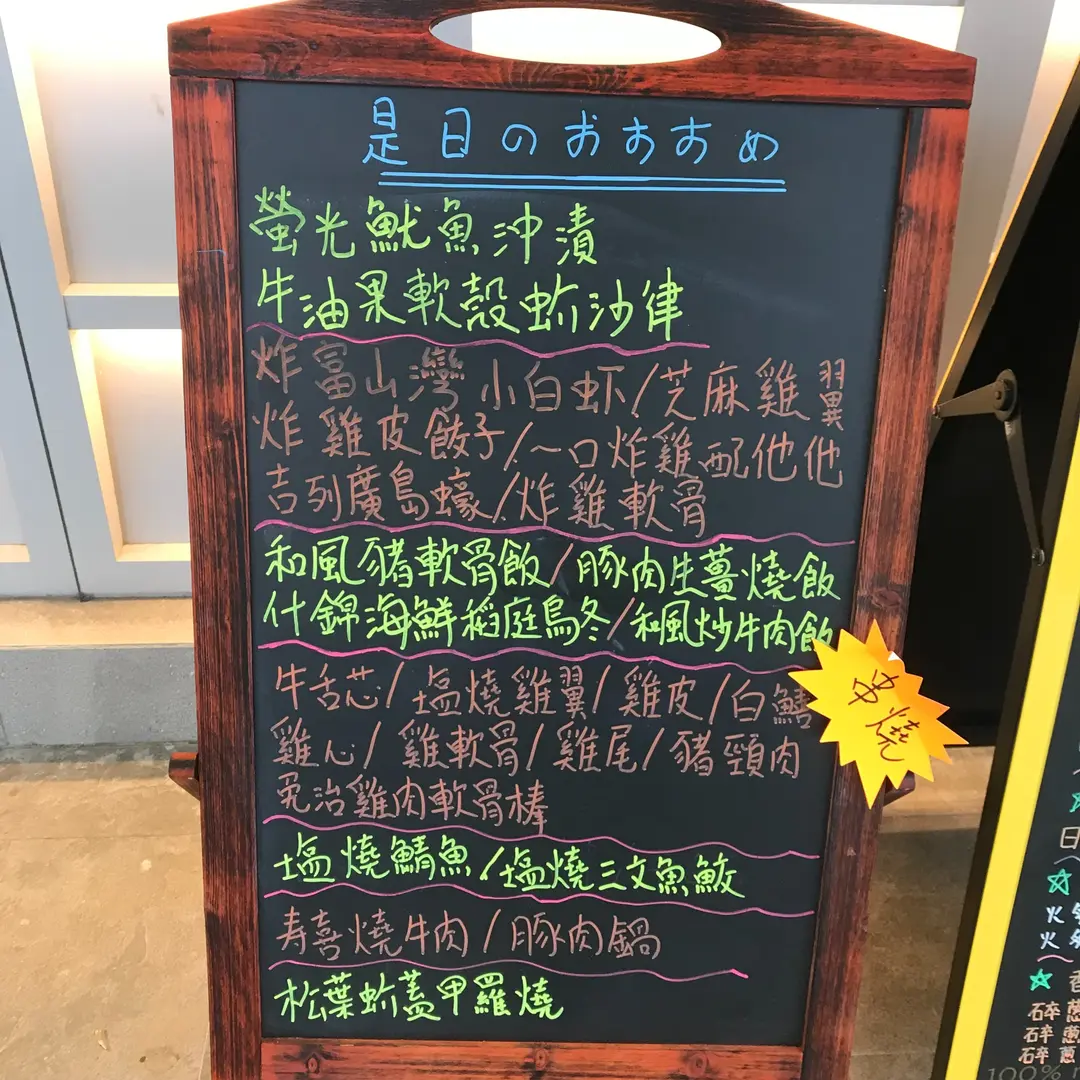 是日のおすすめ
螢光魷魚沖漬
牛油果軟殼蚧沙律
炸富山灣小白虾/芝麻雞翼
炸雞皮餃子/一口炸雞配他他
吉列廣島蠔/炸雞軟骨
和風豬軟骨飯/豚肉生薑燒飯
什錦海鮮稻庭烏冬/和風炒牛肉飯
串燒
牛舌芯/塩燒雞翼/雞皮/白鱔
雞心/雞軟骨/雞尾/豬頸肉
免治雞肉軟骨棒
塩燒鯖魚/塩燒三文魚鮫
寿喜燒牛肉/豚肉鍋
松葉蚧蓋甲羅燒
日
火
火
香
碎蔥
碎蔥
碎蔥
100%